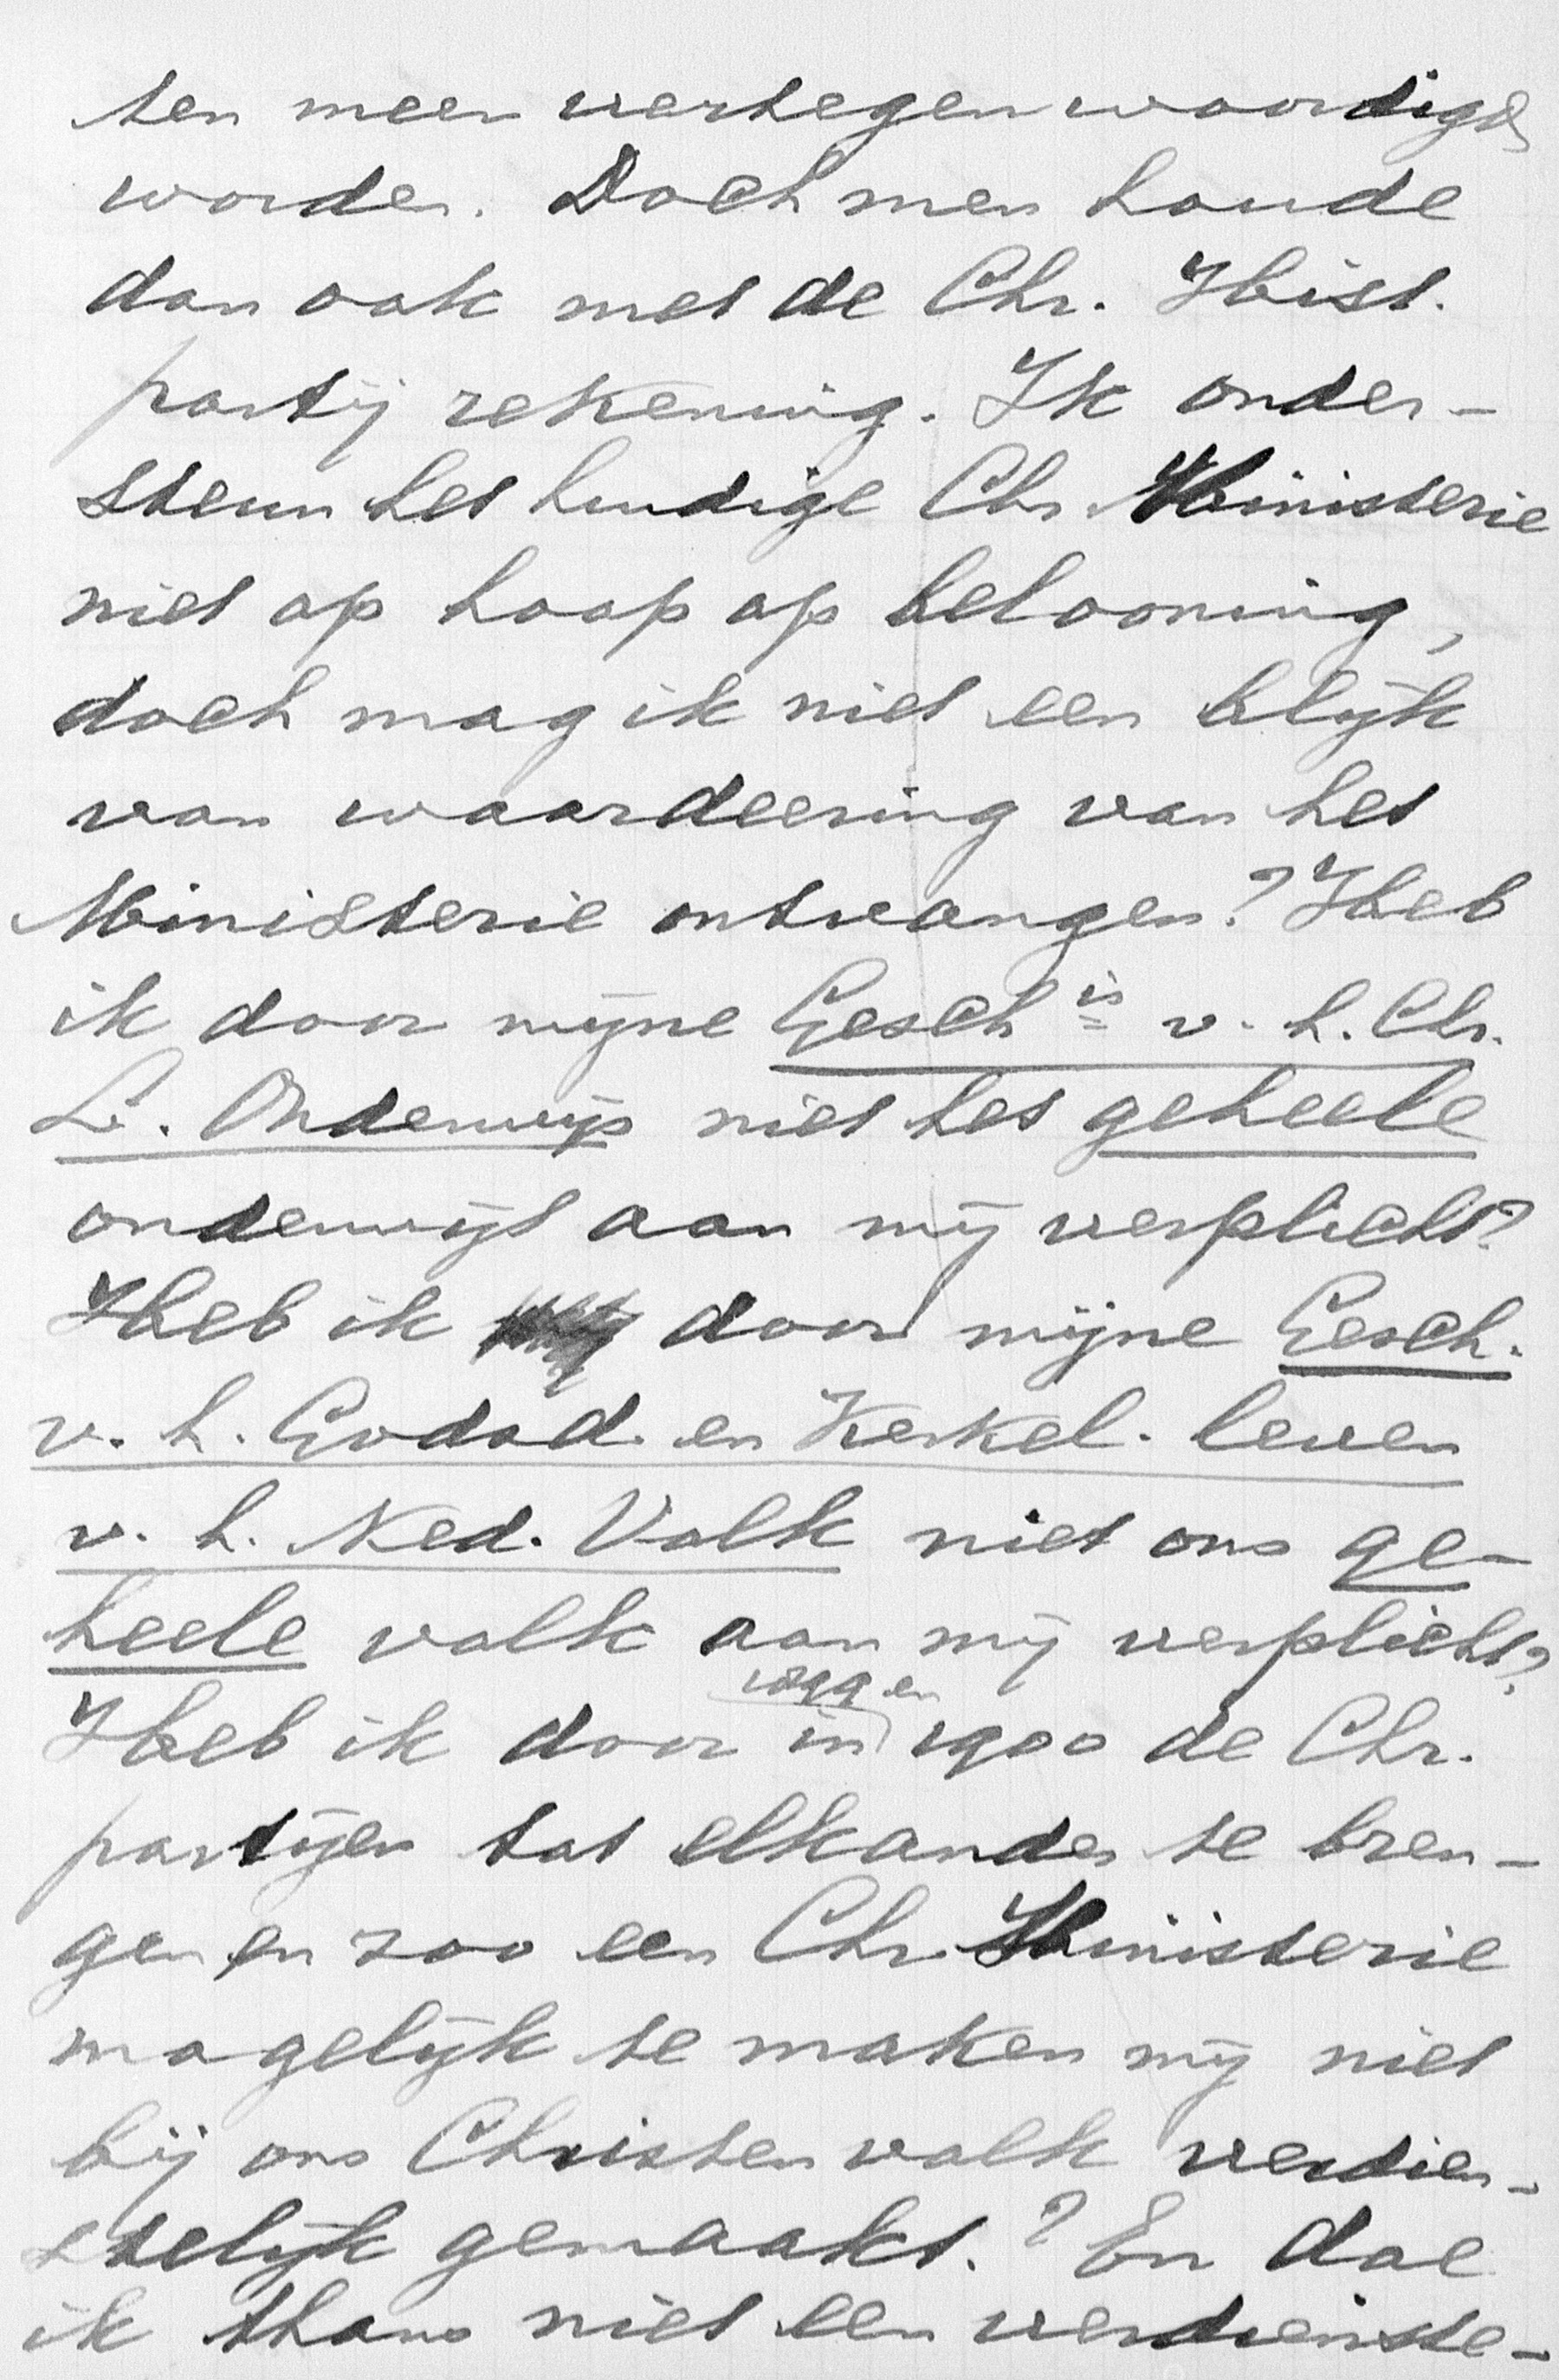 ten meer vertegenwoordigd
worden. Doch men houde
dan ook met de Chr. Hist.
partij rekening. Ik onder-
steun het huidige Chr. Ministerie
niet op hoop op belooning,
doch mag ik niet een blijk
van waardeering van het
Ministerie ontvangen? Heb
ik door mijne Gesch is v. h. Chr.
L. Onderwijs niet het geheele
onderwijs aan mij verplicht?
Heb ik door mijne Gesch.
v. h. Godsd. en Kerkel. leven
v. h. Ned. Volk niet ons ge-
heele volk aan mij verplicht?
1899 en
Heb ik door in 1900 de Chr.
partijen tot elkander te bren-
gen en zoo een Chr. Ministerie
mogelijk te maken mij niet
bij ons Christenvolk verdien-
stelijk gemaakt.? En doe
ik thans niet een verdienste-